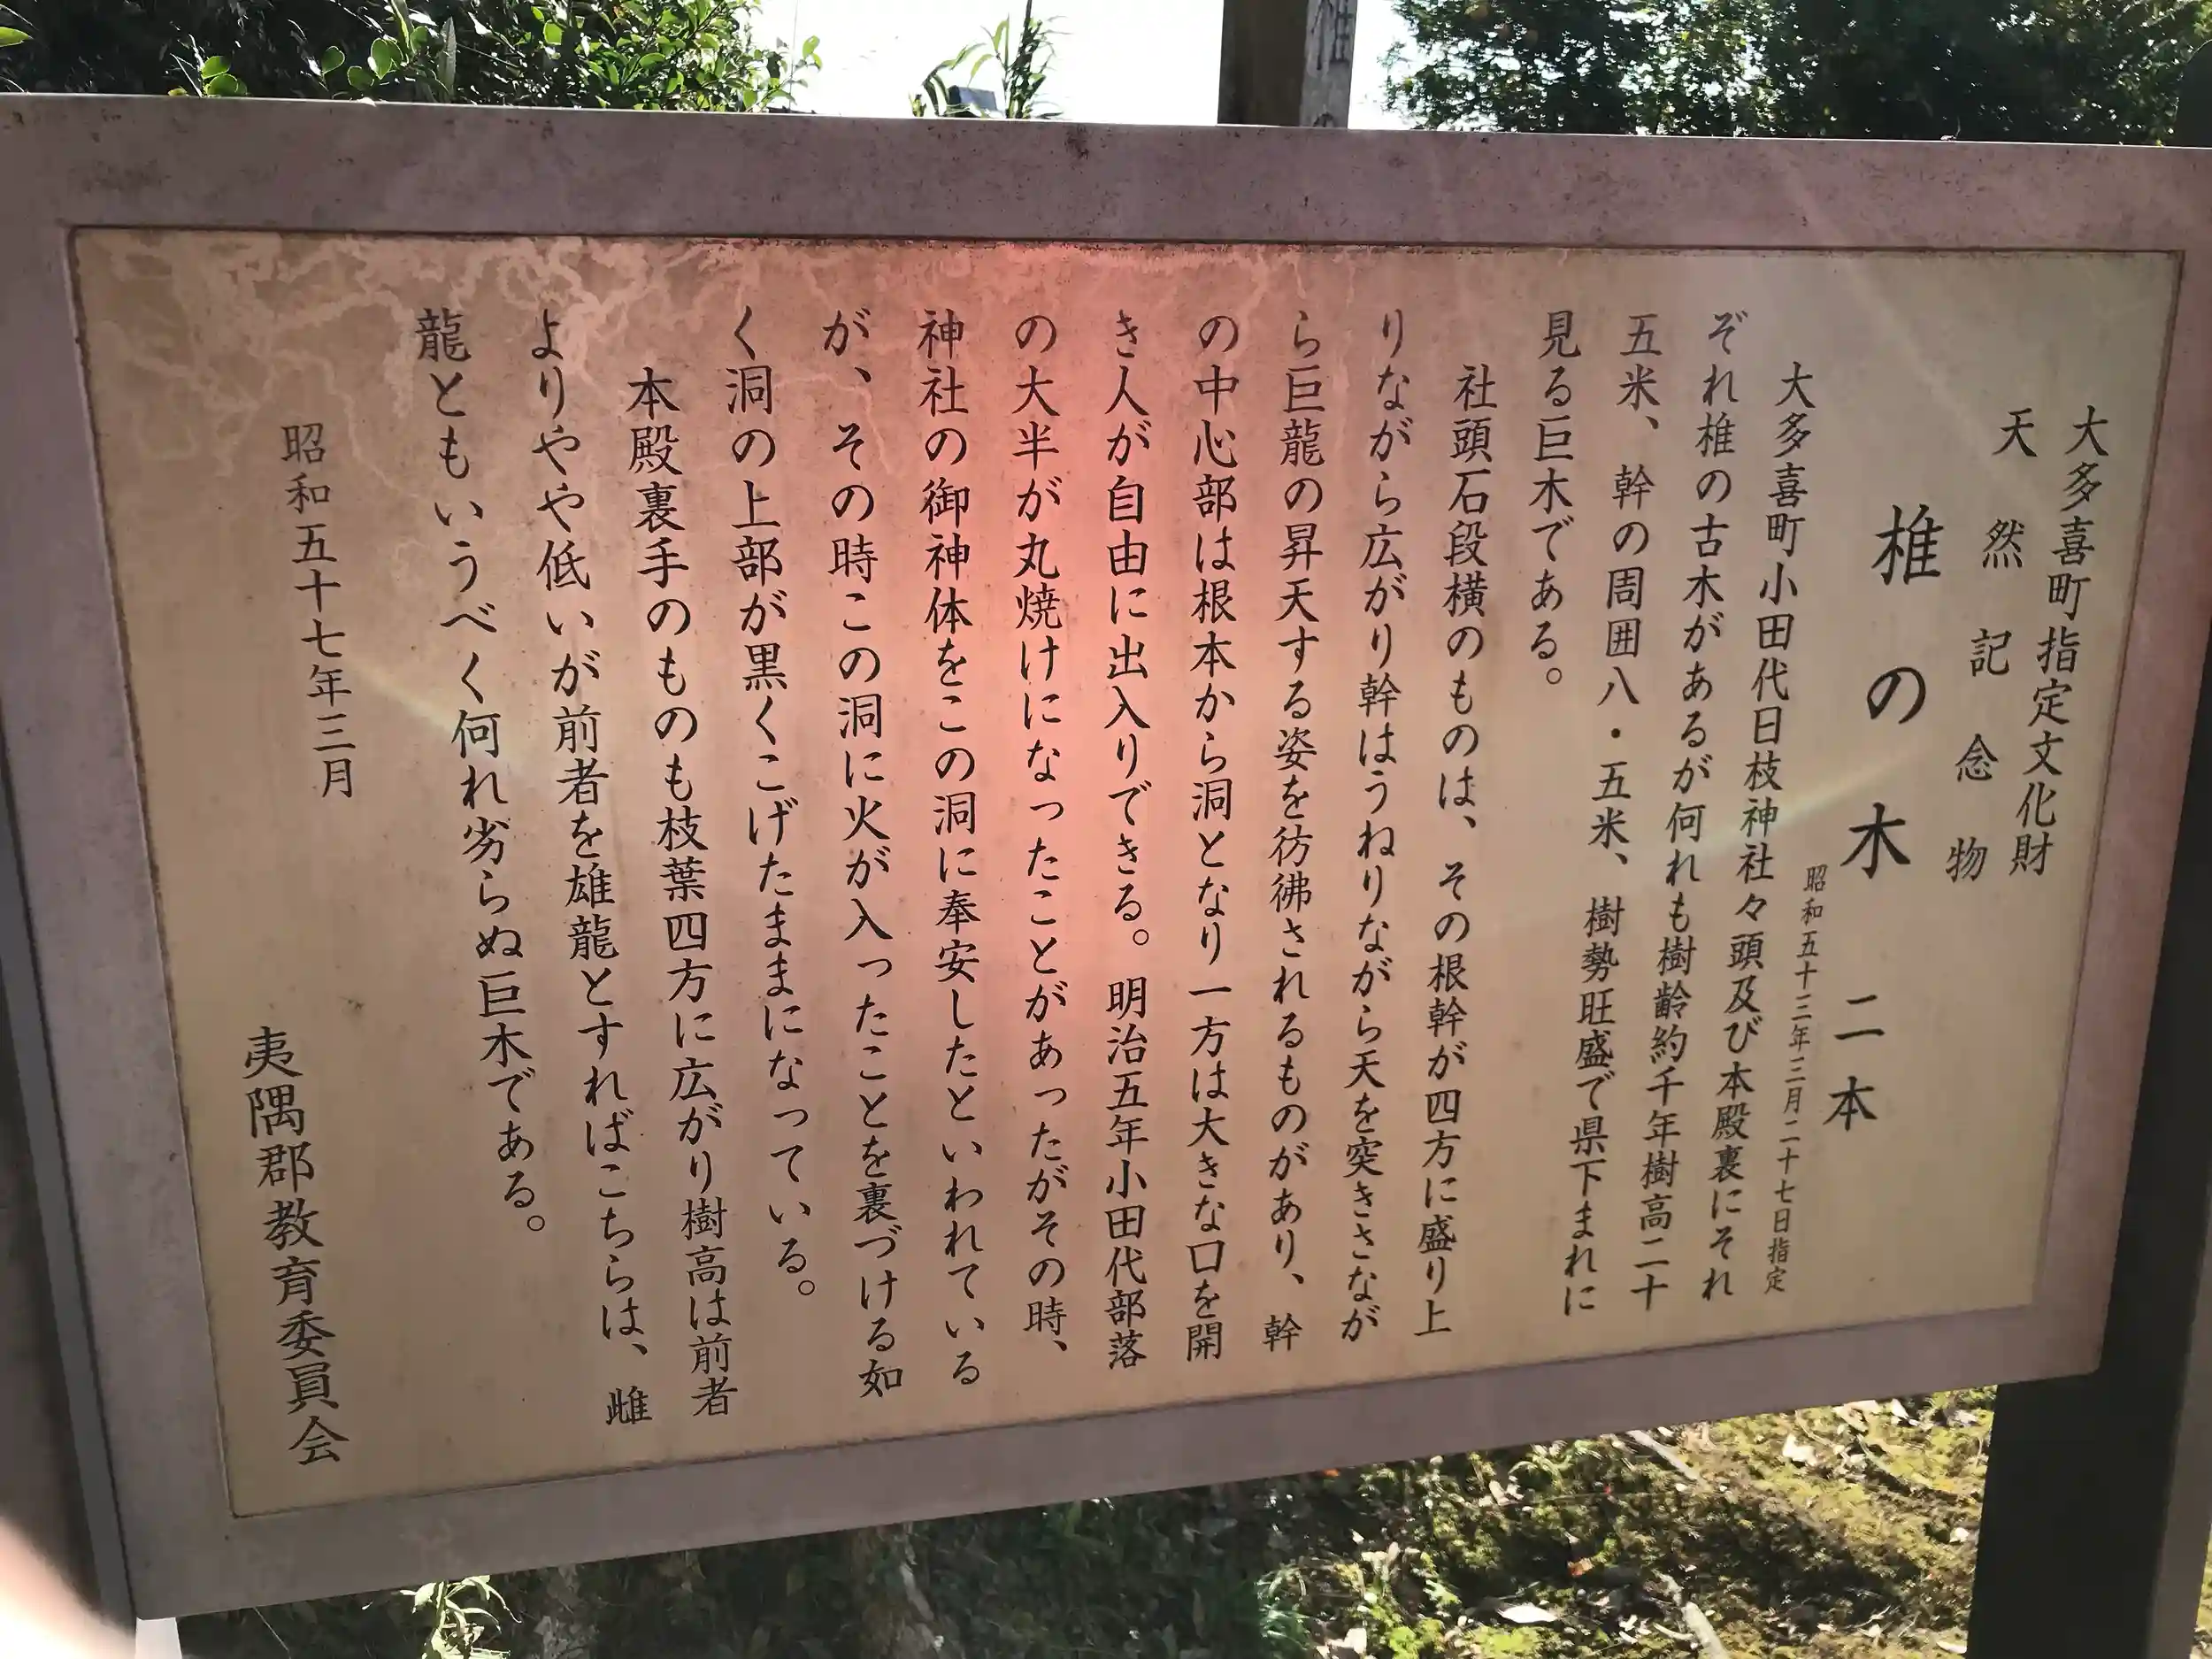 大多喜町指定文化財
天然記念物
椎の木 二本
昭和五十三年三月二十七日指定
大多喜町小田代日枝神社々頭及び本殿裏にそれ
ぞれ椎の古木があるが何れも樹齢約千年樹高二十
五米、幹の周囲八・五米、樹勢旺盛で県下まれに
見る巨木である。
社頭石段横のものは、その根幹が四方に盛り上
りながら広がり幹はうねりながら天を突きさなが
ら巨龍の昇天する姿を彷彿されるものがあり、幹
の中心部は根本から洞となり一方は大きな口を開
き人が自由に出入りできる。明治五年小田代部落
の大半が丸焼けになったことがあったがその時、
神社の御神体をこの洞に奉安したといわれている
が、その時この洞に火が入ったことを裏づける如
く洞の上部が黒くこげたままになっている。
本殿裏手のものも枝葉四方に広がり樹高は前者
よりやや低いが前者を雄龍とすればこちらは、雌
龍ともいうべく何れ劣らぬ巨木である。
昭和五十七年三月
夷隅郡教育委員会